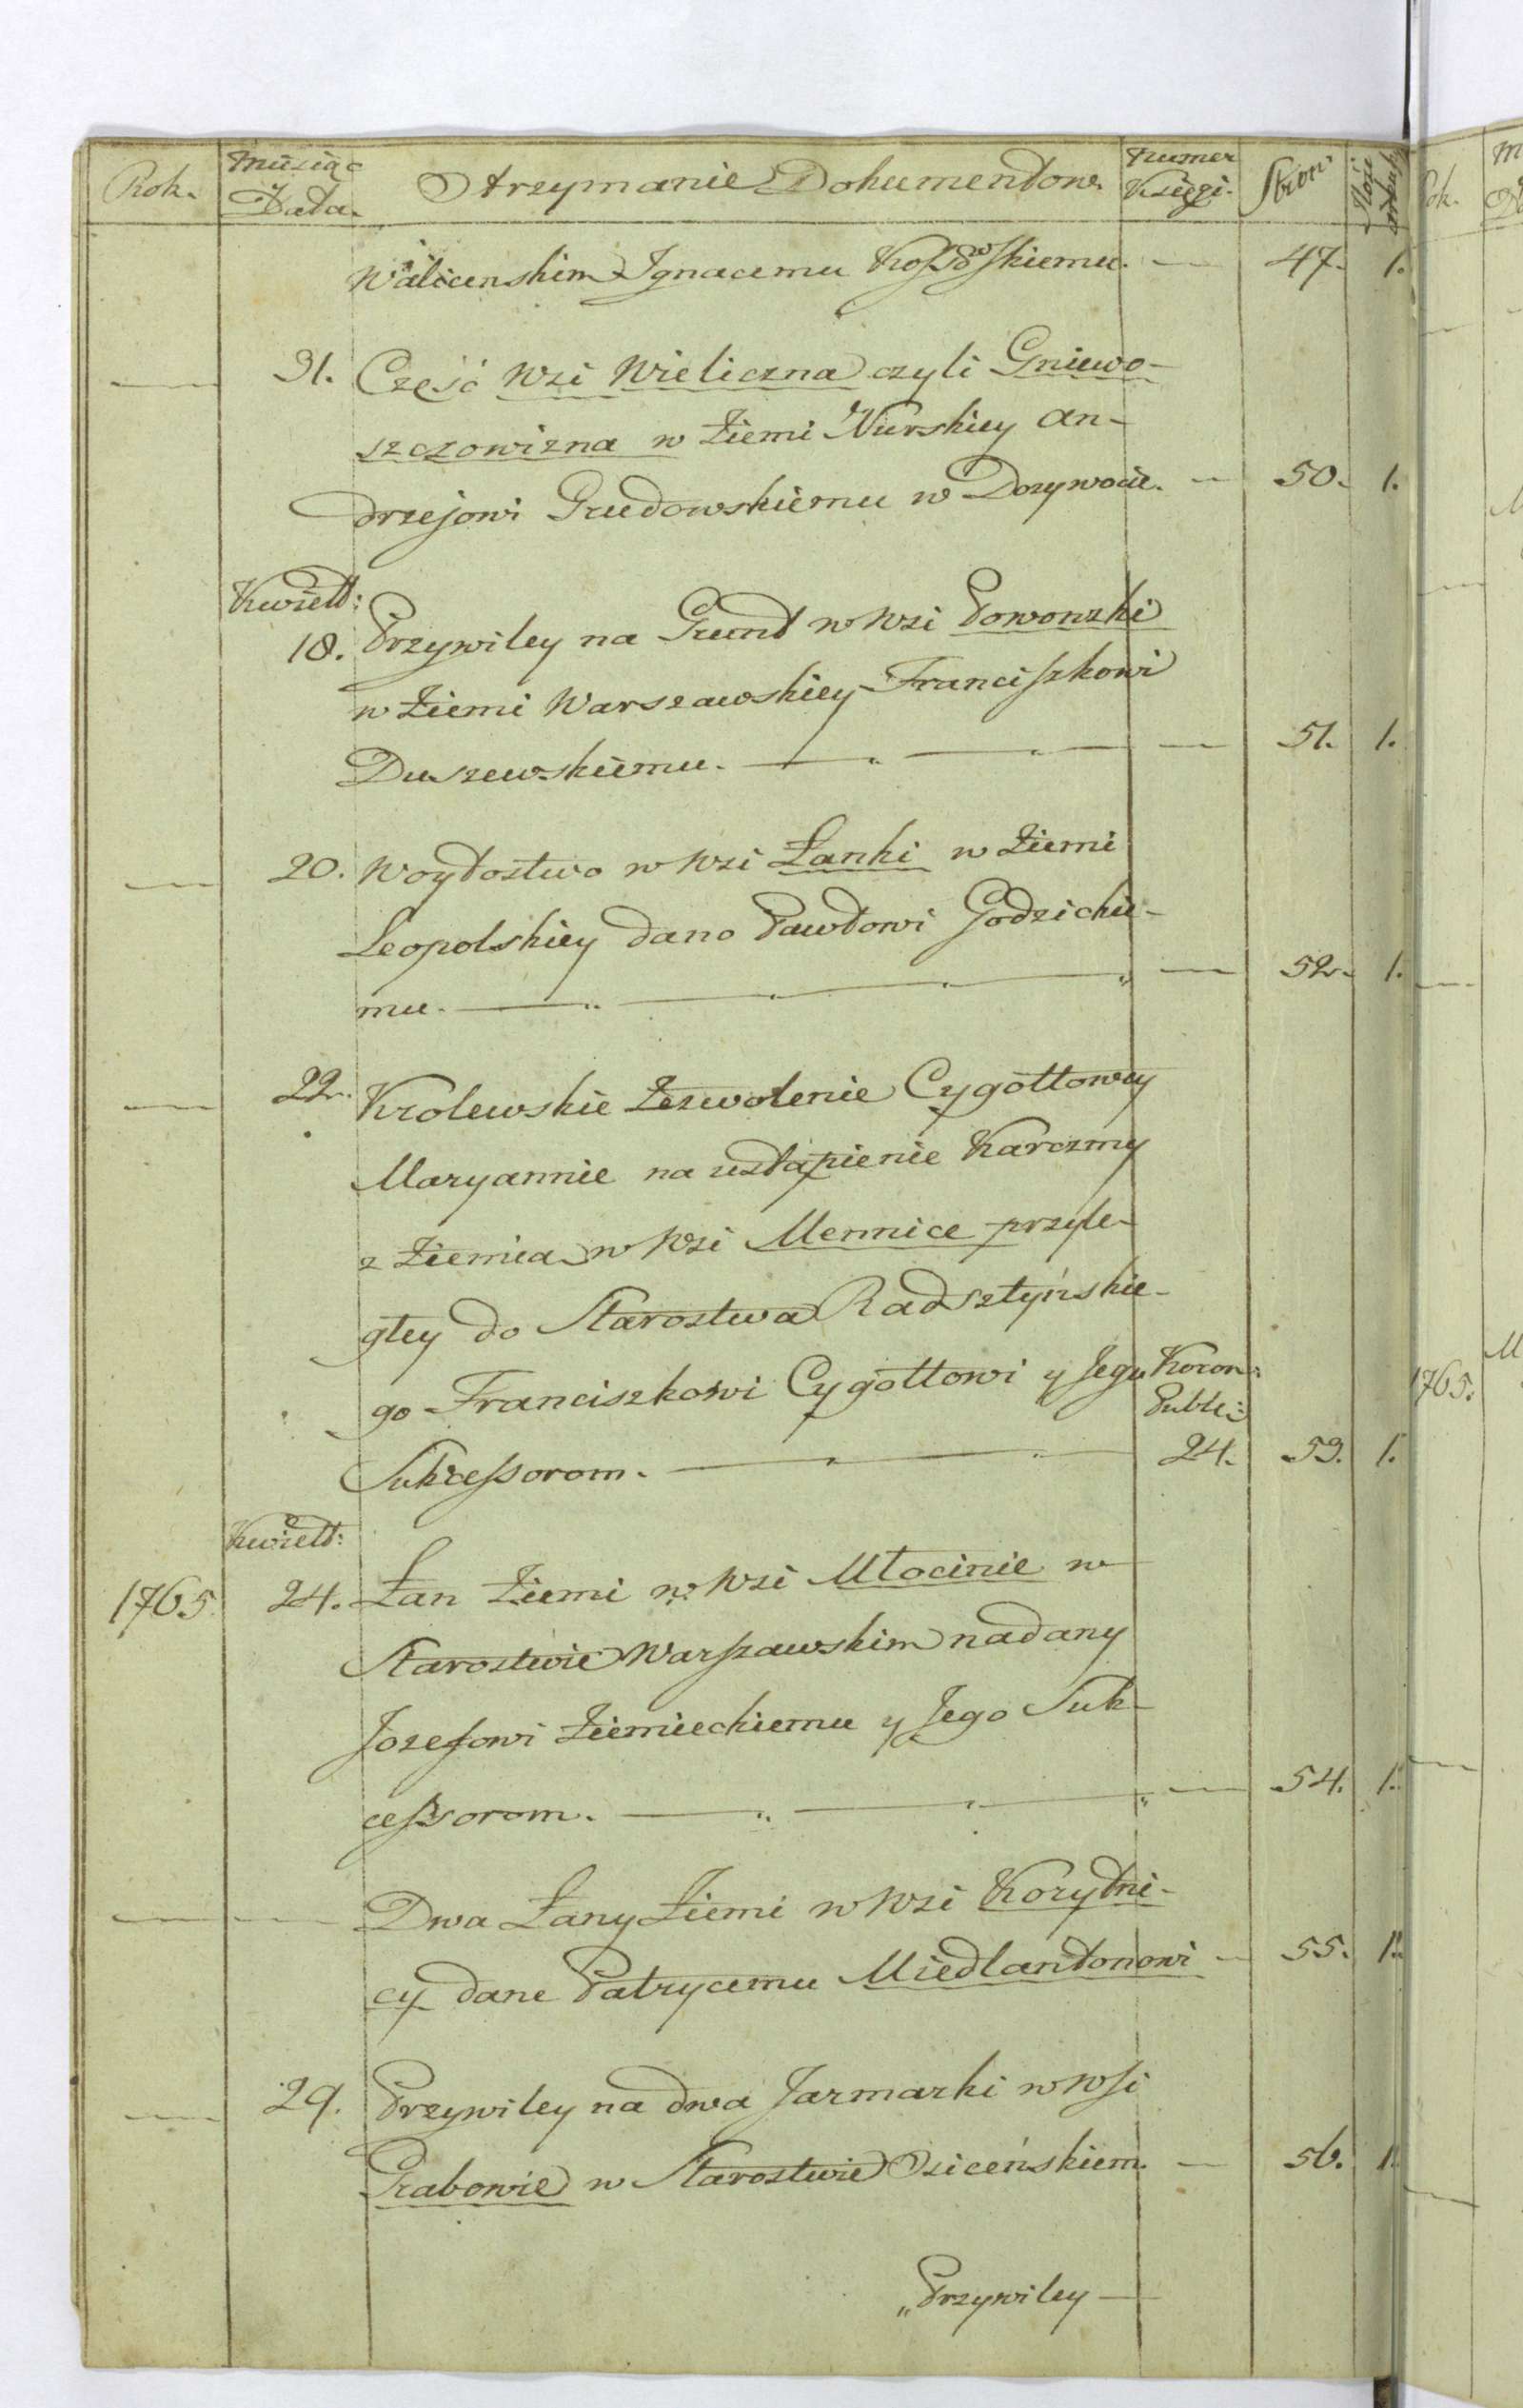 Rok. Miesiąc Data. Otrzymanie Dokumentow. Numer Księgi. Stron
Walicenskim Ignacemu Koſsowſkiemu. — 47. 1.
— 31. Część Wsi Wieliczna czyli Gniewo-
szczowizna w Ziemi Nurskiey An-
drzejowi Grudowskiemu w Dozywocie. — 50. 1.
Kwiett:
18. Przywiley na Grunt w Wsi Powonzki
w Ziemi Warszawskiey Franciſzkowi
Duszewskiemu. — „ — „ — 51. 1.
— 20. Woytostwo w Wsi Łanki w Ziemi
Leopolskiey dano Pawłowi Godzickie-
mu. — „ — „ — „ — „ — 52. 1.
— 22. Krolewskie Zezwolenie Cygołtowey
Maryannie na ustąpienie Karczmy
z Ziemią w Wsi Mennice przyle-
głey do Starostwa Radsztyńskie-
go Franciszkowi Cygołtowi y Jego Koron:
Publ:
Sukceſsorom. — „ — „ — 24. 53. 1.
Kwiett:
1765 24. Łan Ziemi w Wsi Młocinie w
Starostwie Warſzawskim nadany
Jozefowi Ziemieckiemu y Jego Suk-
ceſsorom. — „ — „ — „ — 54. 1.
— — Dwa Łany Ziemi w Wsi Korytni-
cy dane Patrycemu Miedlantonowi — 55. 1.
— 29. Przywiley na dwa Jarmarki w Wſi
Grabowie w Starostwie Osiceńskiem. — 56. 1.
„Przywiley —